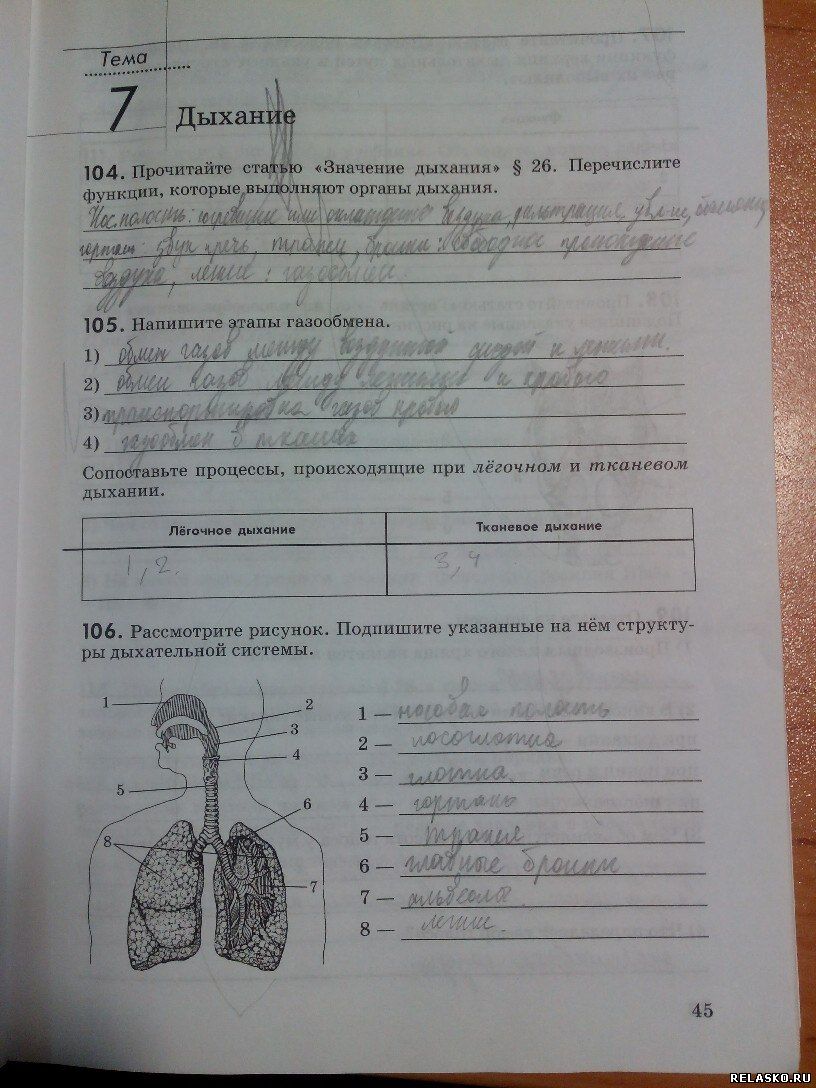 Тема
7 Дыхание
104. Прочитайте статью «Значение дыхания» § 26. Перечислите
функции, которые выполняют органы дыхания.
Нос. полость: или воздуха, фильтрация,
гортань: звук и речь, трахеи, бронхи: свободное прохождение
воздуха, легкие: газообмен
105. Напишите этапы газообмена.
1) обмен газов между воздушной средой и легкими.
2) обмен газов между легкими и кровью
3) газов кровью
4) газообмен в тканях
Сопоставьте процессы, происходящие при лёгочном и тканевом
дыхании.
Лёгочное дыхание Тканевое дыхание
1, 2. 3, 4
106. Рассмотрите рисунок. Подпишите указанные на нём структу-
ры дыхательной системы.
1 — носовая полость
2 — носоглотка
3 — глотка
4 — гортань
5 — трахея
6 — главные бронхи
7 — альвеолы
8 — легкие
1
2
3
4
5
6
7
8
45
RELASKO.RU